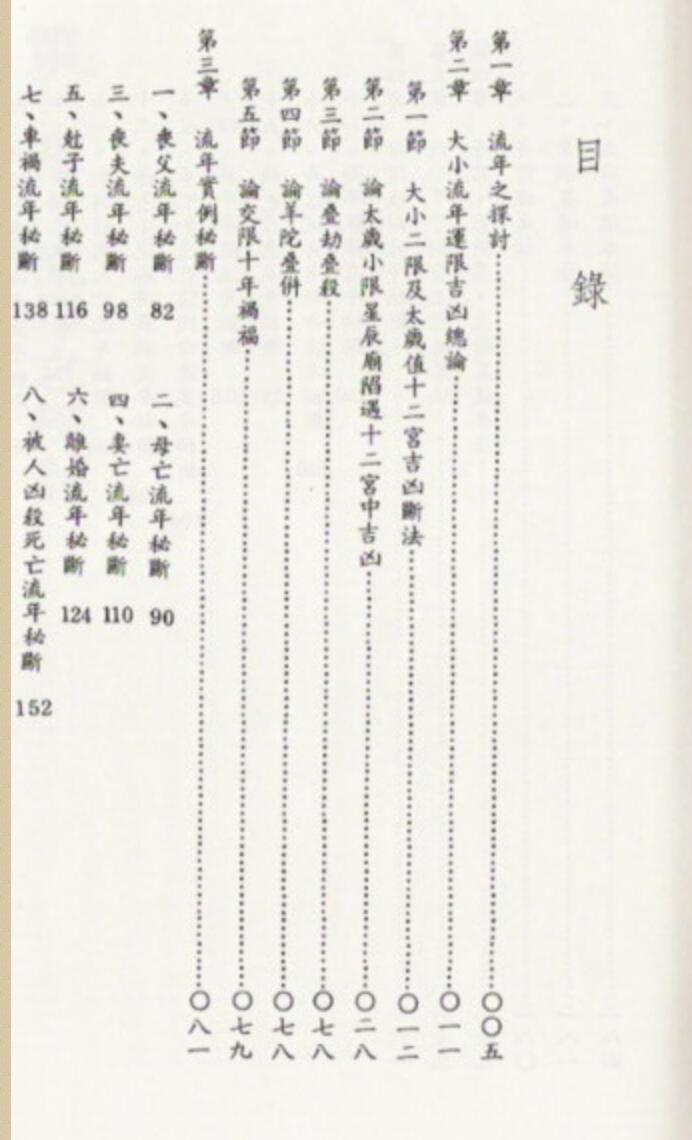 目錄
第一章 流年之探討……〇〇五
第二章 大小流年運限吉凶總論……〇一一
第一節 大小二限及太歲值十二宮吉凶斷法……〇一二
第二節 論太歲小限星辰廟陷遇十二宮中吉凶……〇二八
第三節 論疊劫疊殺……〇七八
第四節 論羊陀疊併……〇七八
第五節 論交限十年禍福……〇七九
第三章 流年實例秘斷……〇八一
一、喪父流年秘斷 82 二、母亡流年秘斷 90
三、喪夫流年秘斷 98 四、妻亡流年秘斷 110
五、尅子流年秘斷 116 六、離婚流年秘斷 124
七、車禍流年秘斷 138 八、被人凶殺死亡流年秘斷 152